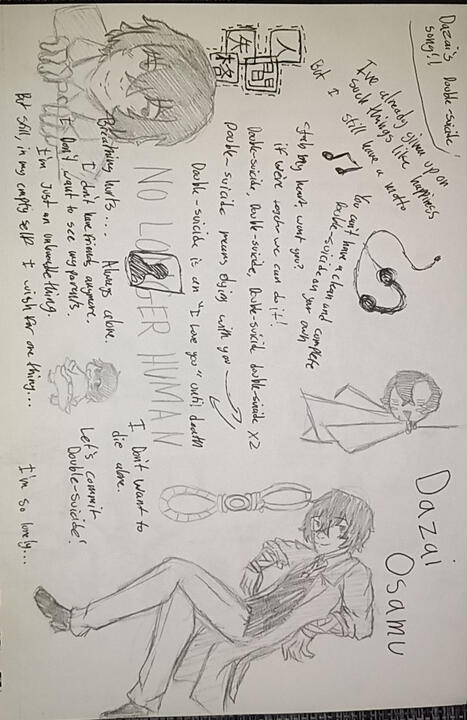 Dazai's Double-suicide song!!
I've already given up on
such things like happiness
But I still have a motto
You can't have a clean and complete
Double-suicide on your own
Stab my heart, won't you?
if we're together we can do it!
Double-suicide, Double-suicide, Double-suicide double-suicide X2
Double-suicide means dying with you
Double-suicide is an "I love you" until death
人間失格
NO LONGER HUMAN
Breathing hurts... Always alone.
I don't have friends anymore.
I Don't want to see my parents.
I'm Just an unlivable thing.
But still, in my empty self I wish for one thing...
I Don't want to
die alone.
Let's commit
Double-suicide!
I'm so lonely...
Dazai
Osamu